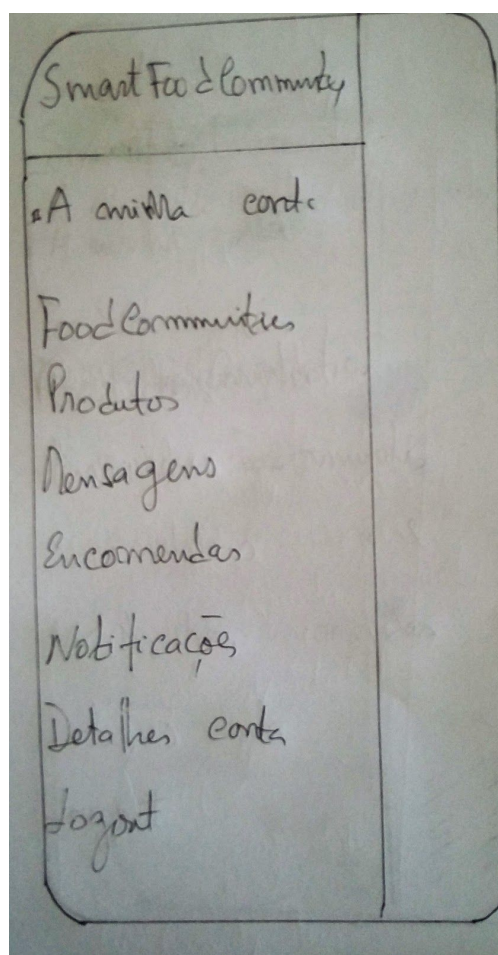 Smart Food Community
A minha conta
Food Communities
Produtos
Mensagens
Encomendas
Notificações
Detalhes conta
Logout